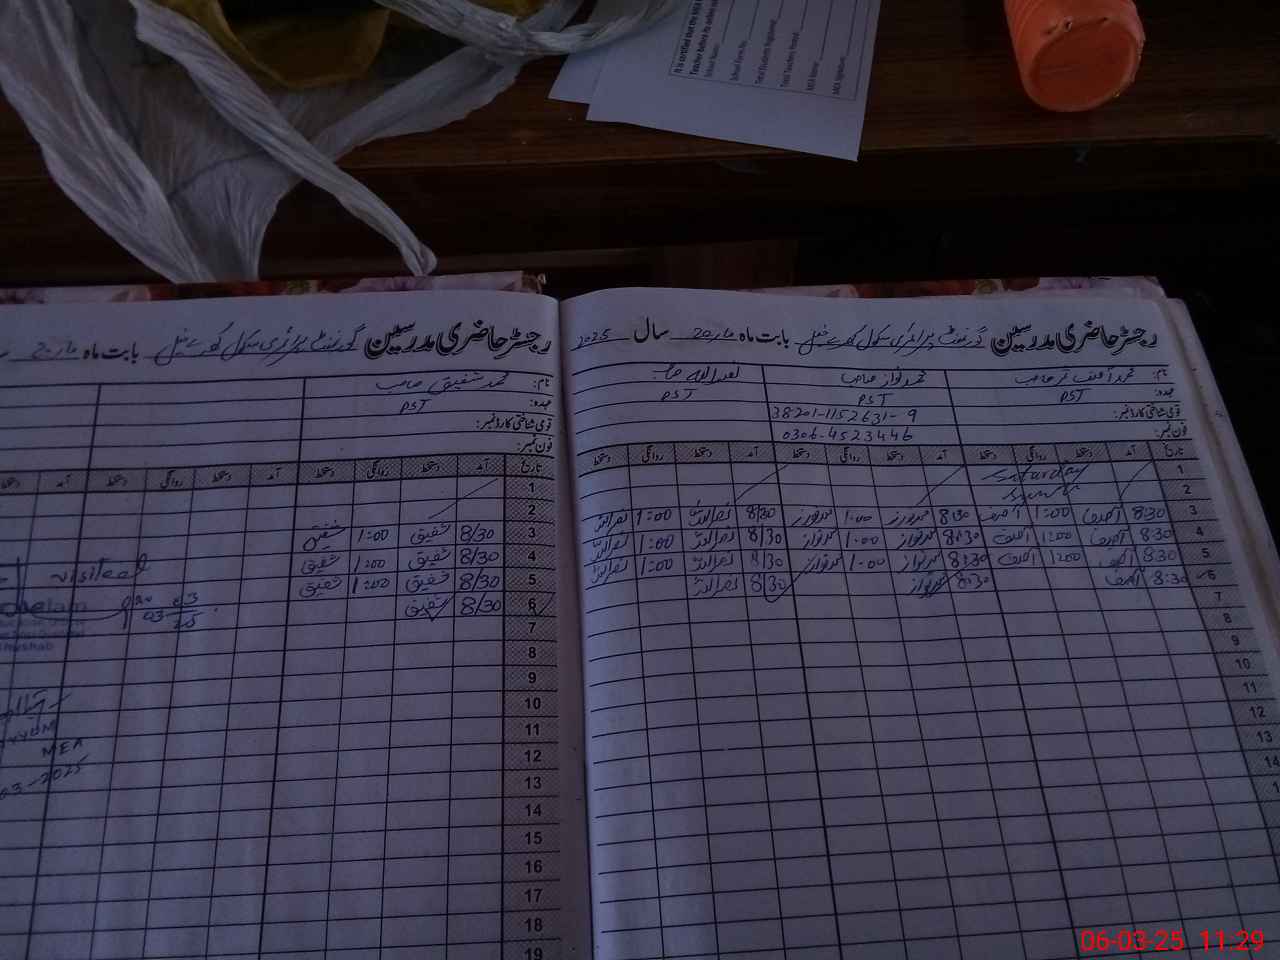 It is certified that the MEA
Teacher before its online
School Name:
School Emis No.
Total Students Registered
Total Teachers Posted
MEA Name:
MEA Signature:
رجسٹر حاضری مدرسین گورنمنٹ پرائمری سکول بابت ماہ مارچ 20 سال 2025
نام: محمد آصف صاحب محمد نواز صاحب نصر اللہ صاحب
عہدہ: PST PST PST
قومی شناختی کارڈ نمبر: 38201-1152631-9
فون نمبر: 0306-4523446
تاریخ آمد دستخط روانگی دستخط آمد دستخط روانگی دستخط آمد دستخط روانگی دستخط
1 Saturday
2 Sunday
3 8:30 آصف 1:00 آصف 8:30 محمد نواز 1:00 محمد نواز 8:30 نصر اللہ 1:00 نصر اللہ
4 8:30 آصف 1:00 آصف 8:30 محمد نواز 1:00 محمد نواز 8/30 نصر اللہ 1:00 نصر اللہ
5 8:30 آصف 1:00 آصف 8:30 محمد نواز 1:00 محمد نواز 8/30 نصر اللہ 1:00 نصر اللہ
6 8:30 آصف 8:30 محمد نواز 8/30 نصر اللہ
7
8
9
10
11
12
13
14
رجسٹر حاضری مدرسین گورنمنٹ پرائمری سکول بابت ماہ مارچ 20
نام: محمد شفیق صاحب
عہدہ: PST
قومی شناختی کارڈ نمبر:
فون نمبر:
تاریخ آمد دستخط روانگی دستخط آمد دستخط روانگی دستخط آمد دستخط
1
2
3 8/30 شفیق 1:00 شفیق
4 8/30 شفیق 1:00 شفیق
5 8/30 شفیق 1:00 شفیق
6 8/30 شفیق
7
8
9
10
11
12
13
14
15
16
17
18
19
visited
03
03
25
Khushab
MEA
03-2025
06-03-25 11:29